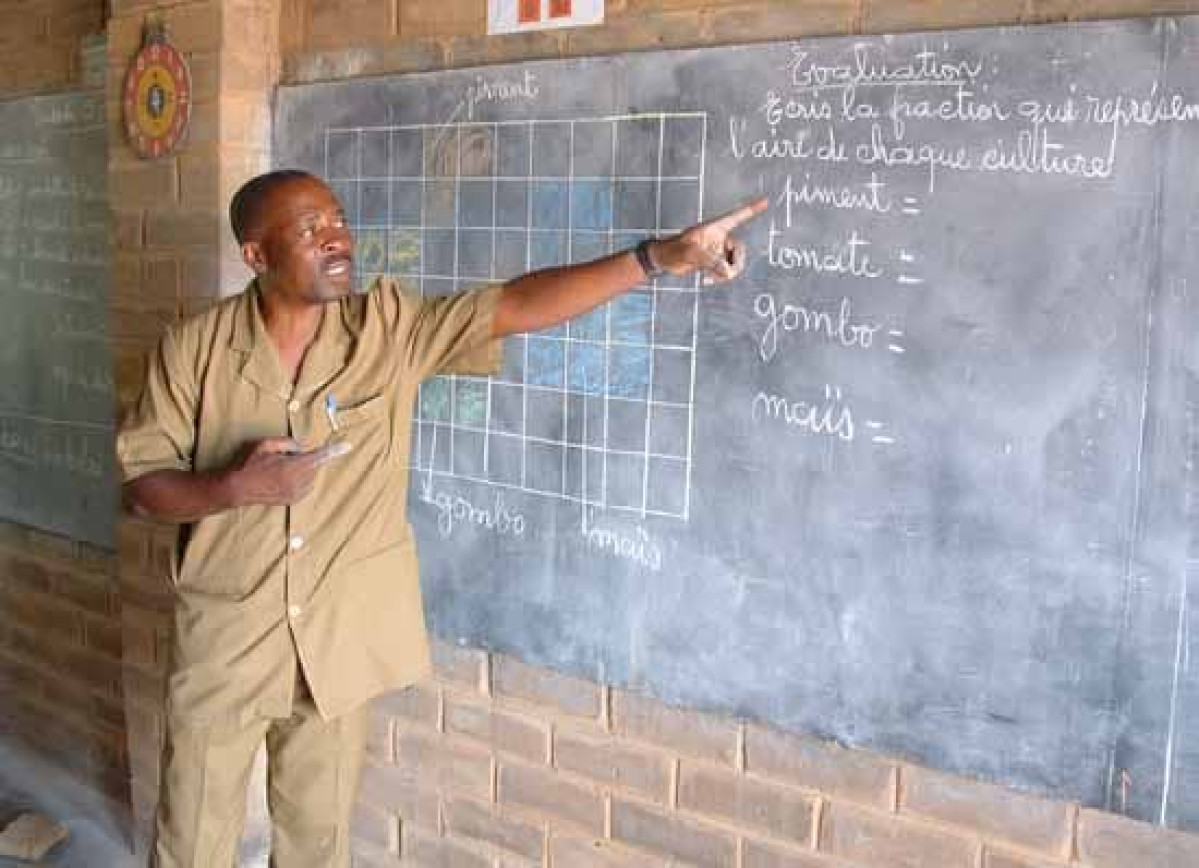 Evaluation :
Ecris la fraction qui représen
l'aire de chaque culture
piment =
tomate =
gombo =
maïs =
gombo
maïs